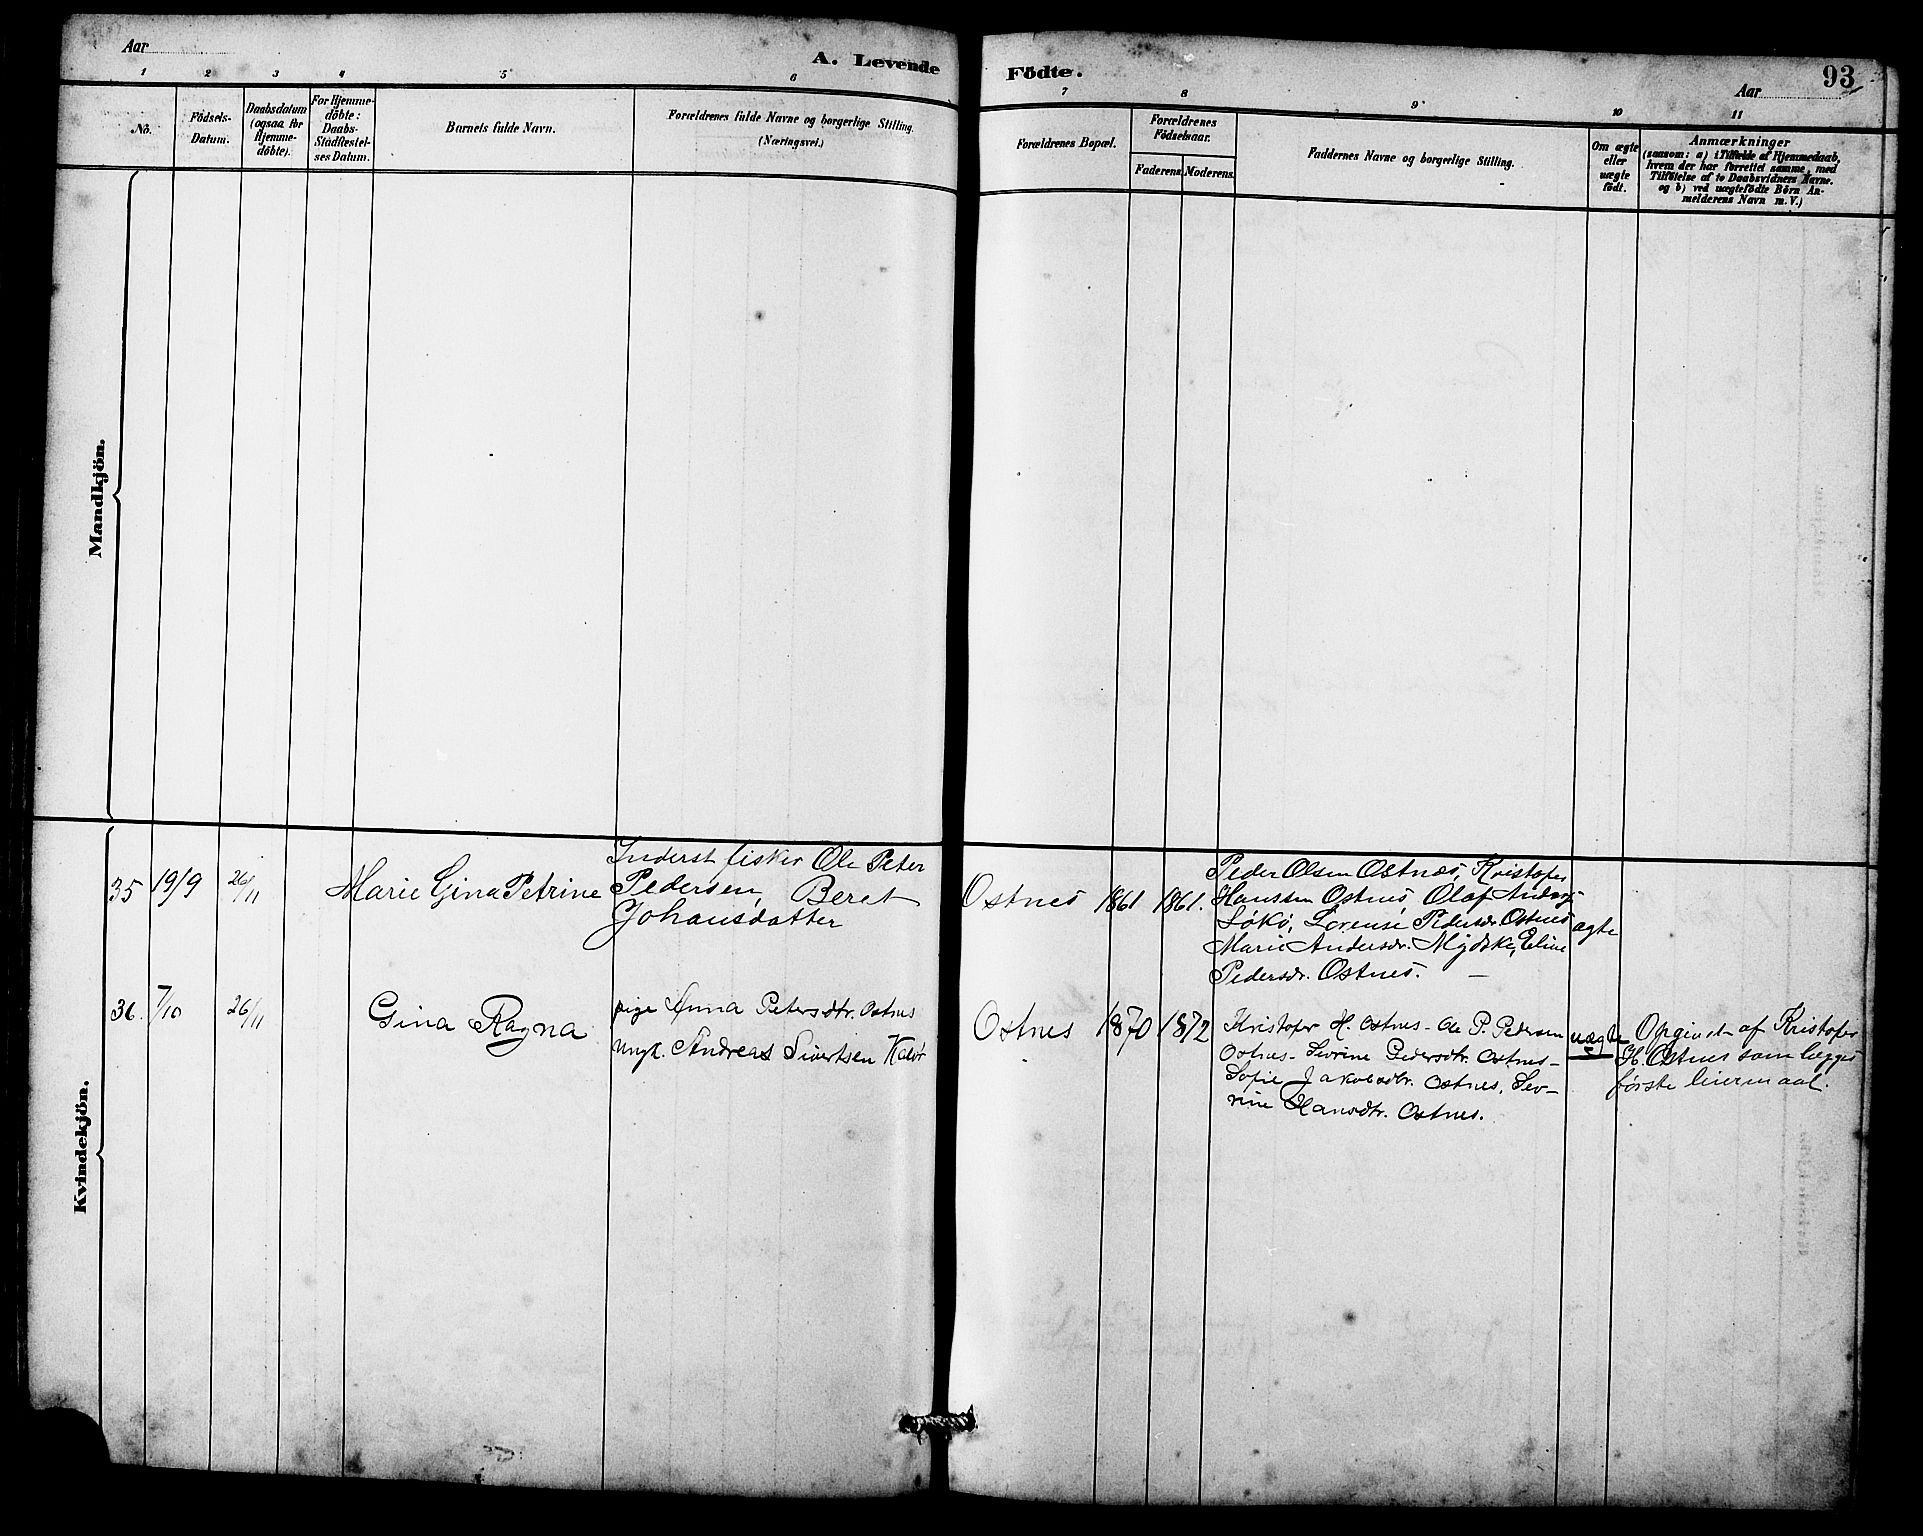 Aar
A. Levende
Födte.
93
Aar
1 2 3 4 5 6 7 8 9 10 11
No.
Födsels-
Datum.
Daabsdatum
(ogsaa for
Hjemme-
döbte).
For Hjemme-
döbte:
Daabs-
Stadfestel-
ses Datum.
Barnets fulde Navn.
Forældrenes fulde Navne og borgerlige Stilling.
(Næringsvei.)
Forældrenes Bopæl.
Forældrenes
Födselsaar.
Faderens.
Moderens.
Faddernes Navne og borgerlige Stilling.
Om ægte
eller
uægte
födt.
Anmærkninger
(saasom: a) i Tilfælde af Hjemmedaab,
hvem der har forrettet samme, med
Tilföielse af to Daabsvidners Navne.
og b) ved uægtefödte Börn An-
melderens Navn m. V.)
Mandkjön.
Kvindekjön.
35
19/9
26/11
Marie Gina Petrine
Inderst fisker Ole Peter
Pedersen, Beret
Johansdatter
Ostnes
1861
1861.
Peder Olsen Ostnæs, Kristofer
Hanssen Ostnes Olaf
Søkø, Lorense Pedersdr. Ostnes
Marie Andersdr. Eline
Pedersdr. Ostnes. —
ægte
36.
7/10
26/11
Gina Ragna
pige Anna Petersdtr. Ostnes
ungk. Andreas Sivertsen
Ostnes
1870
1872
Kristofer H. Ostnes - Ole P. Pedersen
Ostnes - Sevrine Pedersdtr. Ostnes -
Sofie Jakobsdtr. Ostnes. Sev-
rine Hansdtr. Ostnes.
uægte
Opgivet af Kristofer
H. Ostnes som begges
første leiermaal.